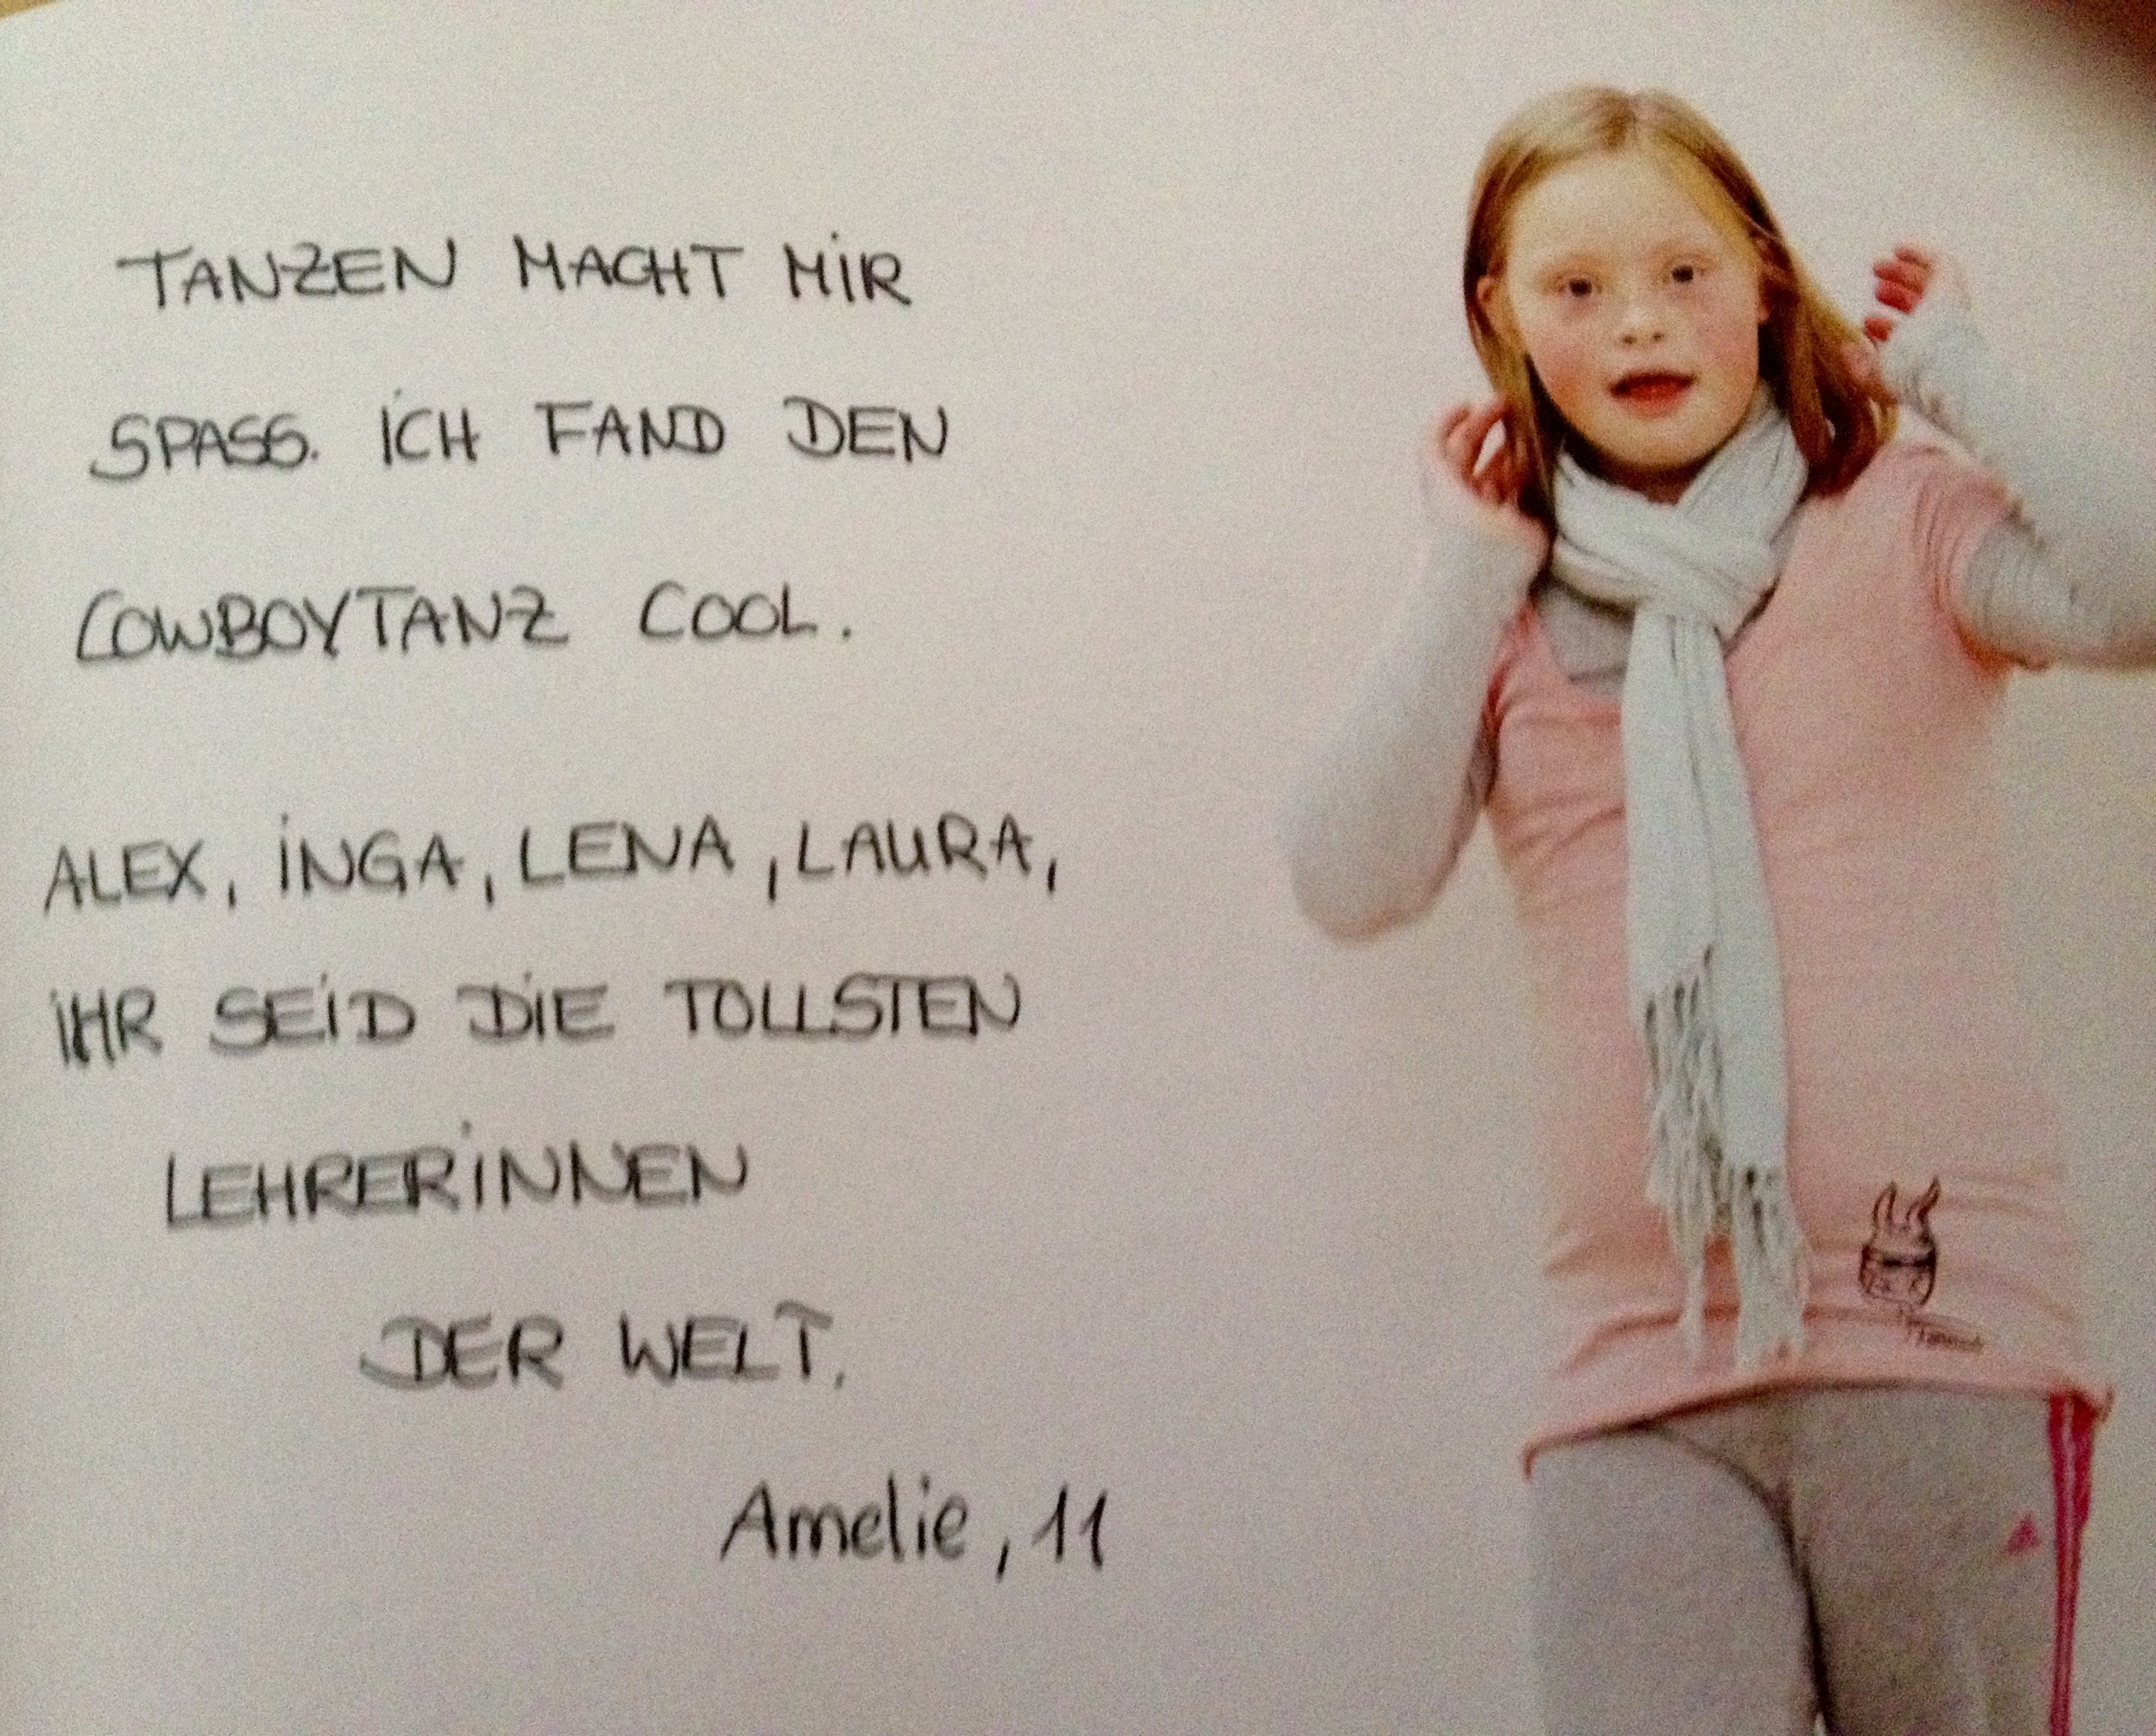 TANZEN MACHT MIR
SPASS. ICH FAND DEN
COWBOYTANZ COOL.
ALEX, INGA, LENA, LAURA,
IHR SEID DIE TOLLSTEN
LEHRERINNEN
DER WELT.
Amelie, 11